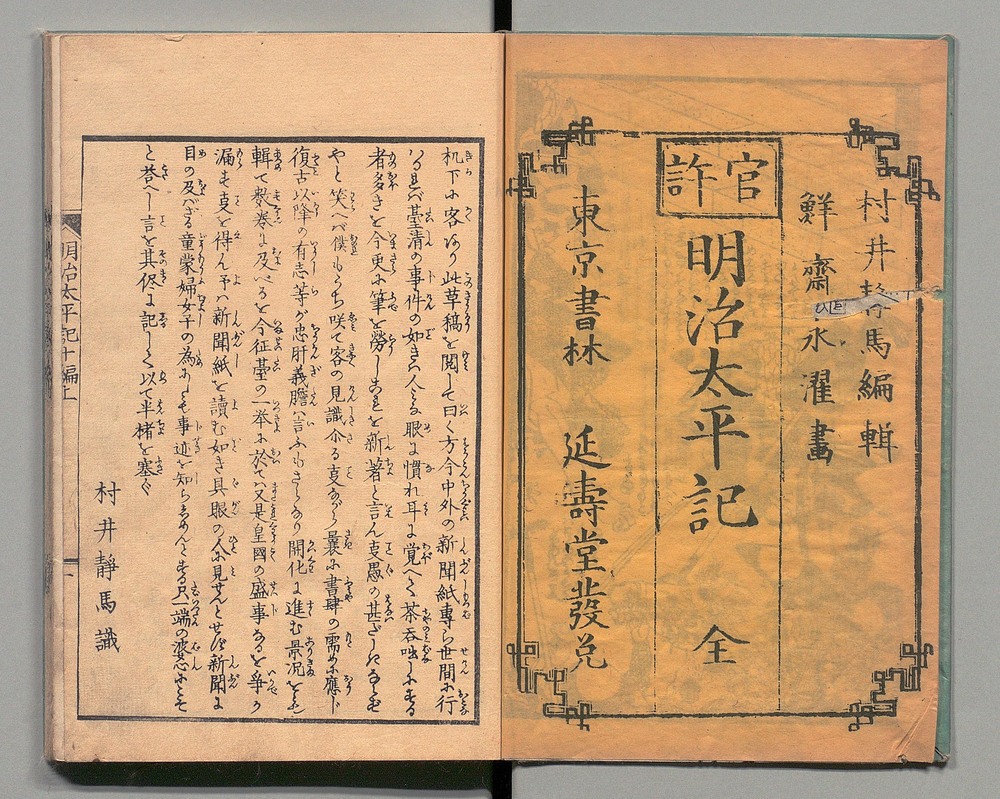 村井静馬編輯
鮮齋永濯畫
官許
明治太平記 全
東京書林 延壽堂發兌
机下に客あり此草稿を閲して曰く方今中外の新聞紙専ら世間に行
はるれバ臺清の事件の如きハ人みな眼に慣れ耳に覚へて茶呑咄しにする
者多きを今更に筆を勞しこれを新著と言ん支愚の甚ざしきならず
やと笑へバ僕もうち咲て客の見識介る支ながら曩に書肆の需めに應じ
復古以降の有志等が忠肝義膽ハ言ふもさらなり開化に進む景况をも
輯て数巻に及べるを今征臺の一挙に於てハ又是皇國の盛事なるを争か
漏す支を得ん予ハ新聞紙を讀む如き具眼の人に見せんとせず新聞に
目の及バざる童蒙婦女子の為にとも事迹を知らしめんとする只一端の婆心にこそ
と荅へし言を其侭に記して以て半楮を塞ぐ
村井靜馬識
明治太平記十編上
一